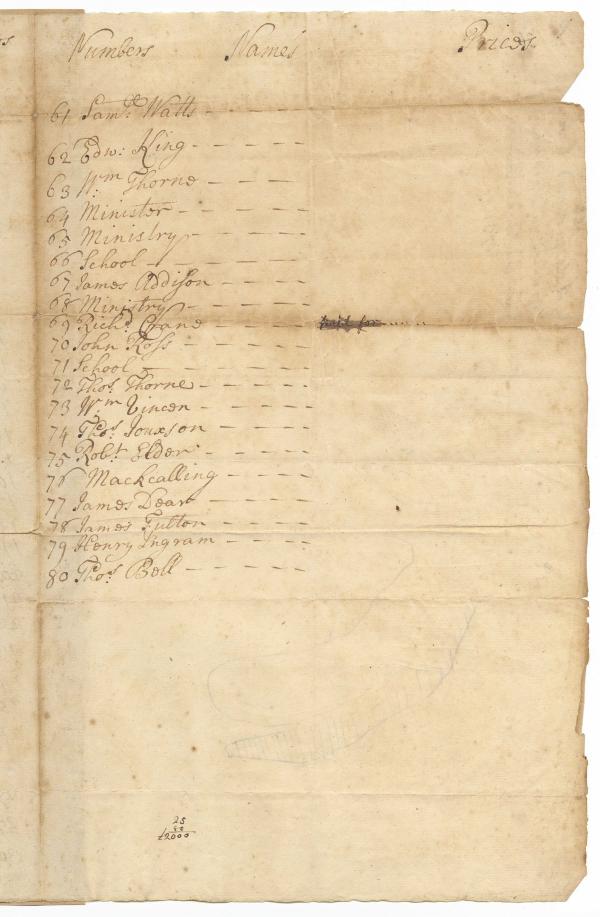 Numbers Names Prices
61 Saml. Watts
62 Edw: King
63 Wm. Thorne
64 Minister
65 Ministry
66 School
67 James Addison
68 Ministry
69 Richd. Crane
70 John Ross
71 School
72 Thos. Thorne
73 Wm Vincen
74 Thos. Jouxson
75 Robt. Elder
76 Mackcalling
77 James Dear
78 James Fulton
79 Henry Ingram
80 Thos. Bell
25
80
£2000